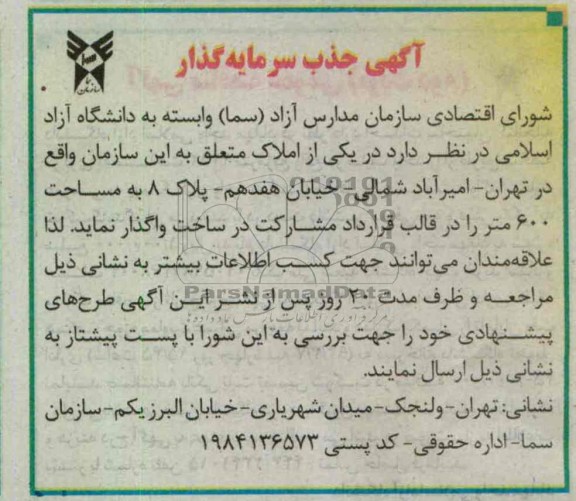 آگهی جذب سرمایه‌گذار
شورای اقتصادی سازمان مدارس آزاد (سما) وابسته به دانشگاه آزاد
اسلامی در نظر دارد در یکی از املاک متعلق به این سازمان واقع
در تهران- امیرآباد شمالی- خیابان هفدهم- پلاک ۸ به مساحت
۶۰۰ متر را در قالب قرارداد مشارکت در ساخت واگذار نماید. لذا
علاقه‌مندان می‌توانند جهت کسب اطلاعات بیشتر به نشانی ذیل
مراجعه و ظرف مدت ۲۰ روز پس از نشر این آگهی طرح‌های
پیشنهادی خود را جهت بررسی به این شورا با پست پیشتاز به
نشانی ذیل ارسال نمایند.
نشانی: تهران- ولنجک- میدان شهریاری- خیابان البرز یکم- سازمان
سما- اداره حقوقی- کد پستی ۱۹۸۴۱۳۶۵۷۳
ParsNamadData